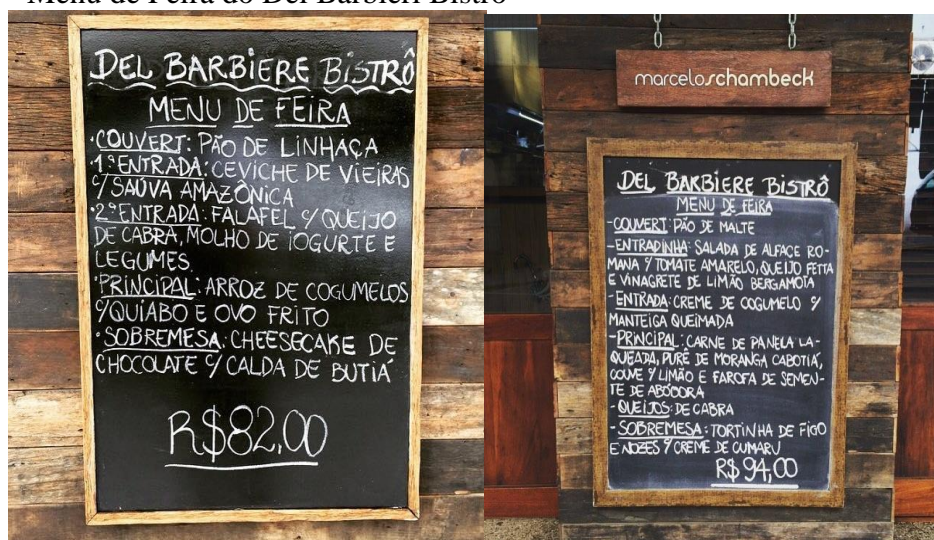 Menu de Feira do Del Barbieri Bistrô
DEL BARBIERE BISTRÔ
MENU DE FEIRA
·COUVERT: PÃO DE LINHAÇA
·1ª ENTRADA: CEVICHE DE VIEIRAS
C/ SAÚVA AMAZÔNICA
·2ª ENTRADA: FALAFEL C/ QUEIJO
DE CABRA, MOLHO DE IOGURTE E
LEGUMES.
·PRINCIPAL: ARROZ DE COGUMELOS
C/ QUIABO E OVO FRITO
·SOBREMESA: CHEESECAKE DE
CHOCOLATE C/ CALDA DE BUTIÁ
R$82,00
marceloschambeck
DEL BARBIERE BISTRÔ
MENU DE FEIRA
-COUVERT: PÃO DE MALTE
-ENTRADINHA: SALADA DE ALFACE RO-
MANA C/ TOMATE AMARELO, QUEIJO FETTA
E VINAGRETE DE LIMÃO BERGAMOTA
-ENTRADA: CREME DE COGUMELO C/
MANTEIGA QUEIMADA
-PRINCIPAL: CARNE DE PANELA LA-
QUEADA, PURÊ DE MORANGA CABOTIÁ,
COUVE C/ LIMÃO E FAROFA DE SEMEN-
TE DE ABÓBORA
-QUEIJOS: DE CABRA
-SOBREMESA: TORTINHA DE FIGO
E NOZES C/ CREME DE CUMARU
R$ 94,00